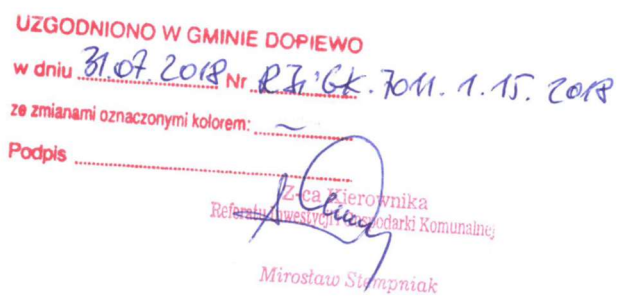 UZGODNIONO W GMINIE DOPIEWO
w dniu 31.07.2018 Nr RIiGK.7011.1.15.2018
ze zmianami oznaczonymi kolorem: ~
Podpis
Z-ca Kierownika
Referatu Inwestycji i Gospodarki Komunalnej
Mirosław Stempniak